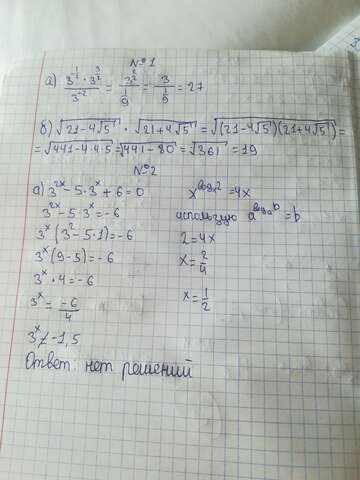 №1
а) (3^(-1/2) · 3^(3/2)) / 3^(-2) = 3^(2/2) / (1/9) = 3 / (1/9) = 27
б) √(21-4√5) · √(21+4√5) = √((21-4√5)(21+4√5)) =
= √(441-4·4·5) = √(441-80) = √361 = 19
№2
а) 3^(2x) - 5·3^x + 6 = 0
3^(2x) - 5·3^x = -6
3^x (3^2 - 5·1) = -6
3^x (9-5) = -6
3^x · 4 = -6
3^x = -6/4
3^x ≠ -1,5
Ответ: нет решений
x^(log_x 2) = 4x
использую a^(log_a b) = b
2 = 4x
x = 2/4
x = 1/2